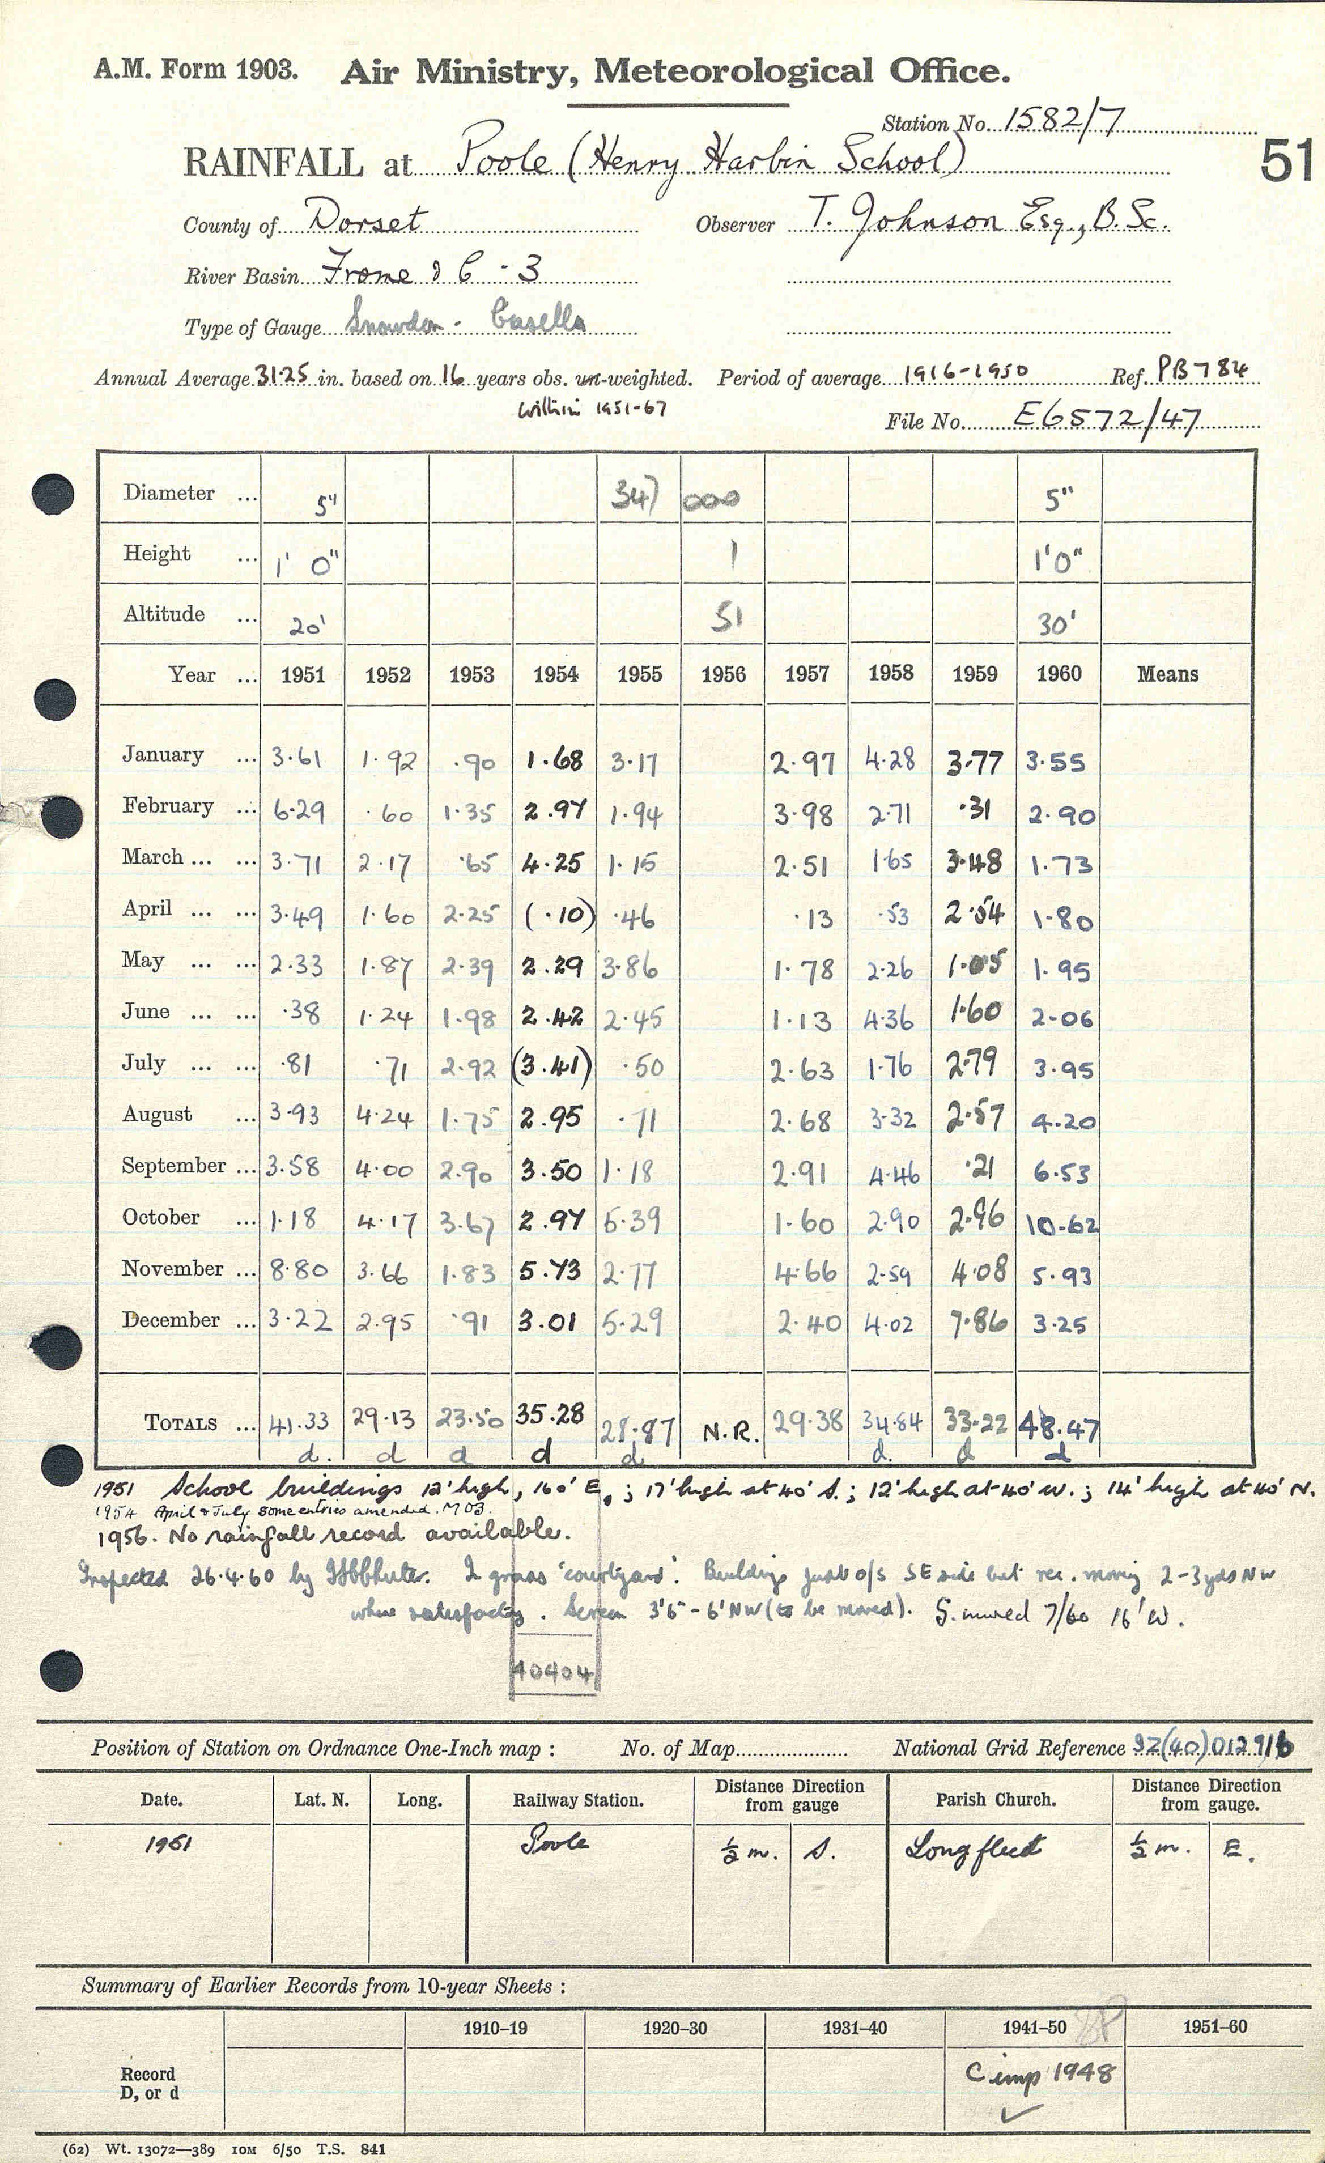 A.M. Form 1903. Air Ministry, Meteorological Office.
Station No. 1582/7
RAINFALL at Poole (Henry Harbin School) 51
County of Dorset Observer T. Johnson Esq., B.Sc.
River Basin Frome & C - 3
Type of Gauge Snowdon - Casella
Annual Average 31.25 in. based on 16 years obs. un-weighted. Period of average 1916-1950 Ref. PB784
within 1951-67
File No. E6572/47
Diameter ... 5" 347 000 5"
Height ... 1' 0" 1 1'0"
Altitude ... 20' 51 30'
Year ... 1951 1952 1953 1954 1955 1956 1957 1958 1959 1960 Means
January ... 3.61 1.92 .90 1.68 3.17 2.97 4.28 3.77 3.55
February ... 6.29 .60 1.35 2.97 1.94 3.98 2.71 .31 2.90
March ... ... 3.71 2.17 .65 4.25 1.15 2.51 1.65 3.48 1.73
April ... ... 3.49 1.60 2.25 (.10) .46 .13 .53 2.54 1.80
May ... ... 2.33 1.87 2.39 2.29 3.86 1.78 2.26 1.05 1.95
June ... ... .38 1.24 1.98 2.42 2.45 1.13 4.36 1.60 2.06
July ... ... .81 .71 2.92 (3.41) .50 2.63 1.76 2.79 3.95
August ... 3.93 4.24 1.75 2.95 .71 2.68 3.32 2.57 4.20
September ... 3.58 4.00 2.90 3.50 1.18 2.91 4.46 .21 6.53
October ... 1.18 4.17 3.67 2.97 5.39 1.60 2.90 2.96 10.62
November ... 8.80 3.66 1.83 5.73 2.77 4.66 2.59 4.08 5.93
December ... 3.22 2.95 .91 3.01 5.29 2.40 4.02 7.86 3.25
TOTALS ... 41.33 29.13 23.50 35.28 28.87 N.R. 29.38 34.84 33.22 48.47
d. d d d d d. d d
1951 School buildings 12' high, 160' E.; 17' high at 40' S.; 12' high at 40' W.; 14' high at 40' N.
1954 April & July some entries amended. MOB.
1956. No rainfall record available.
Inspected 26.4.60 by In grass 'courtyard'. Buildings just o/s SE side but rec. moving 2-3yds NW
where satisfactory. Screen 3'6" - 6' NW (to be moved). G. moved 7/60 16' W.
40404
Position of Station on Ordnance One-Inch map : No. of Map National Grid Reference SZ(40)012916
Date. Lat. N. Long. Railway Station. Distance from gauge Direction Parish Church. Distance from gauge. Direction
1951 Poole ½ m. S. Longfleet ½ m. E.
Summary of Earlier Records from 10-year Sheets :
1910-19 1920-30 1931-40 1941-50 1951-60
Record
D, or d
C imp 1948
(62) Wt. 13072—389 10M 6/50 T.S. 841